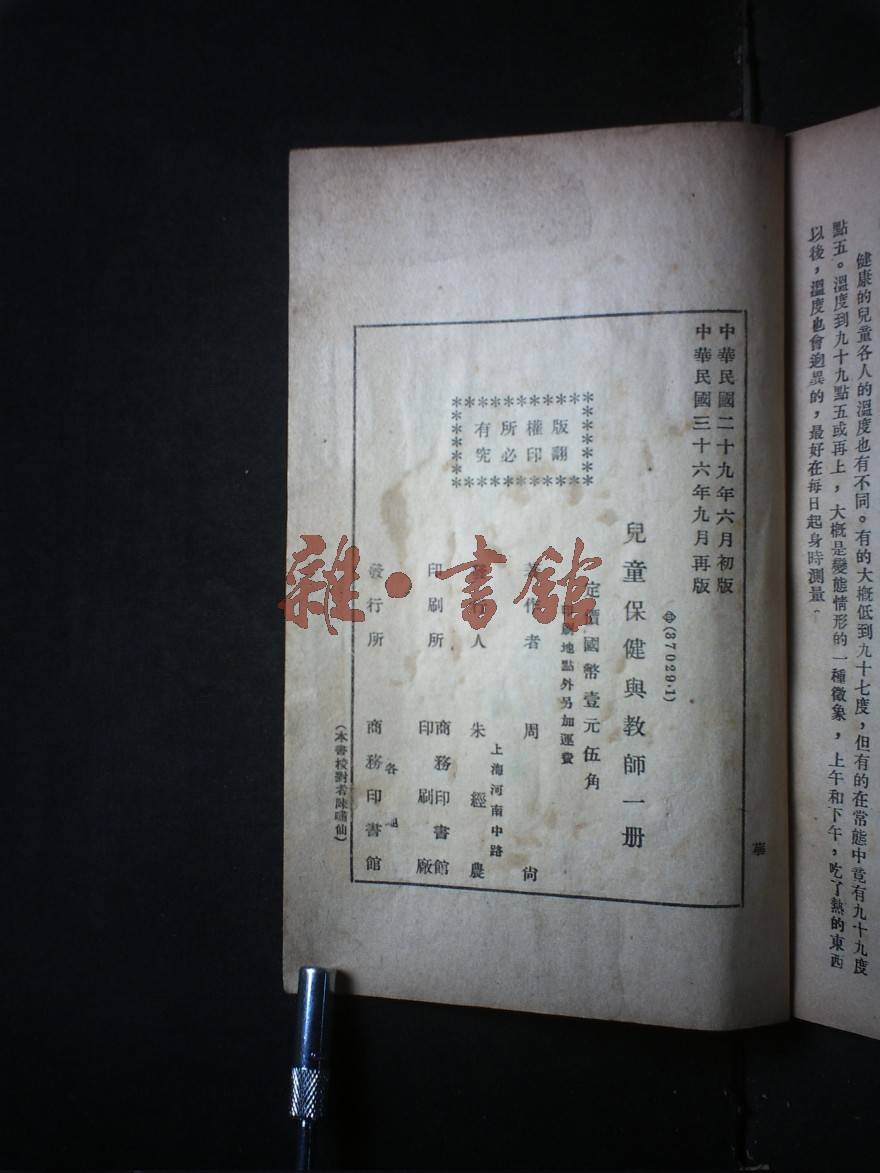 健康的兒童各人的溫度也有不同。有的大槪低到九十七度，但有的在常態中竟有九十九度
點五。溫度到九十九點五或再上，大槪是變態情形的一種徵象，上午和下午，吃了熱的東西
以後，溫度也會迥異的，最好在每日起身時測量。
華
中華民國二十九年六月初版
中華民國三十六年九月再版
(37029·1)
兒童保健與教師一册
定價國幣壹元伍角
印刷地點外另加運費
版權所有
翻印必究
著作者 周尙
上海河南中路
發行人 朱經農
印刷所 商務印書館印刷廠
各
發行所 商務印書館
(本書校對者陳嘯仙)
雜·書館